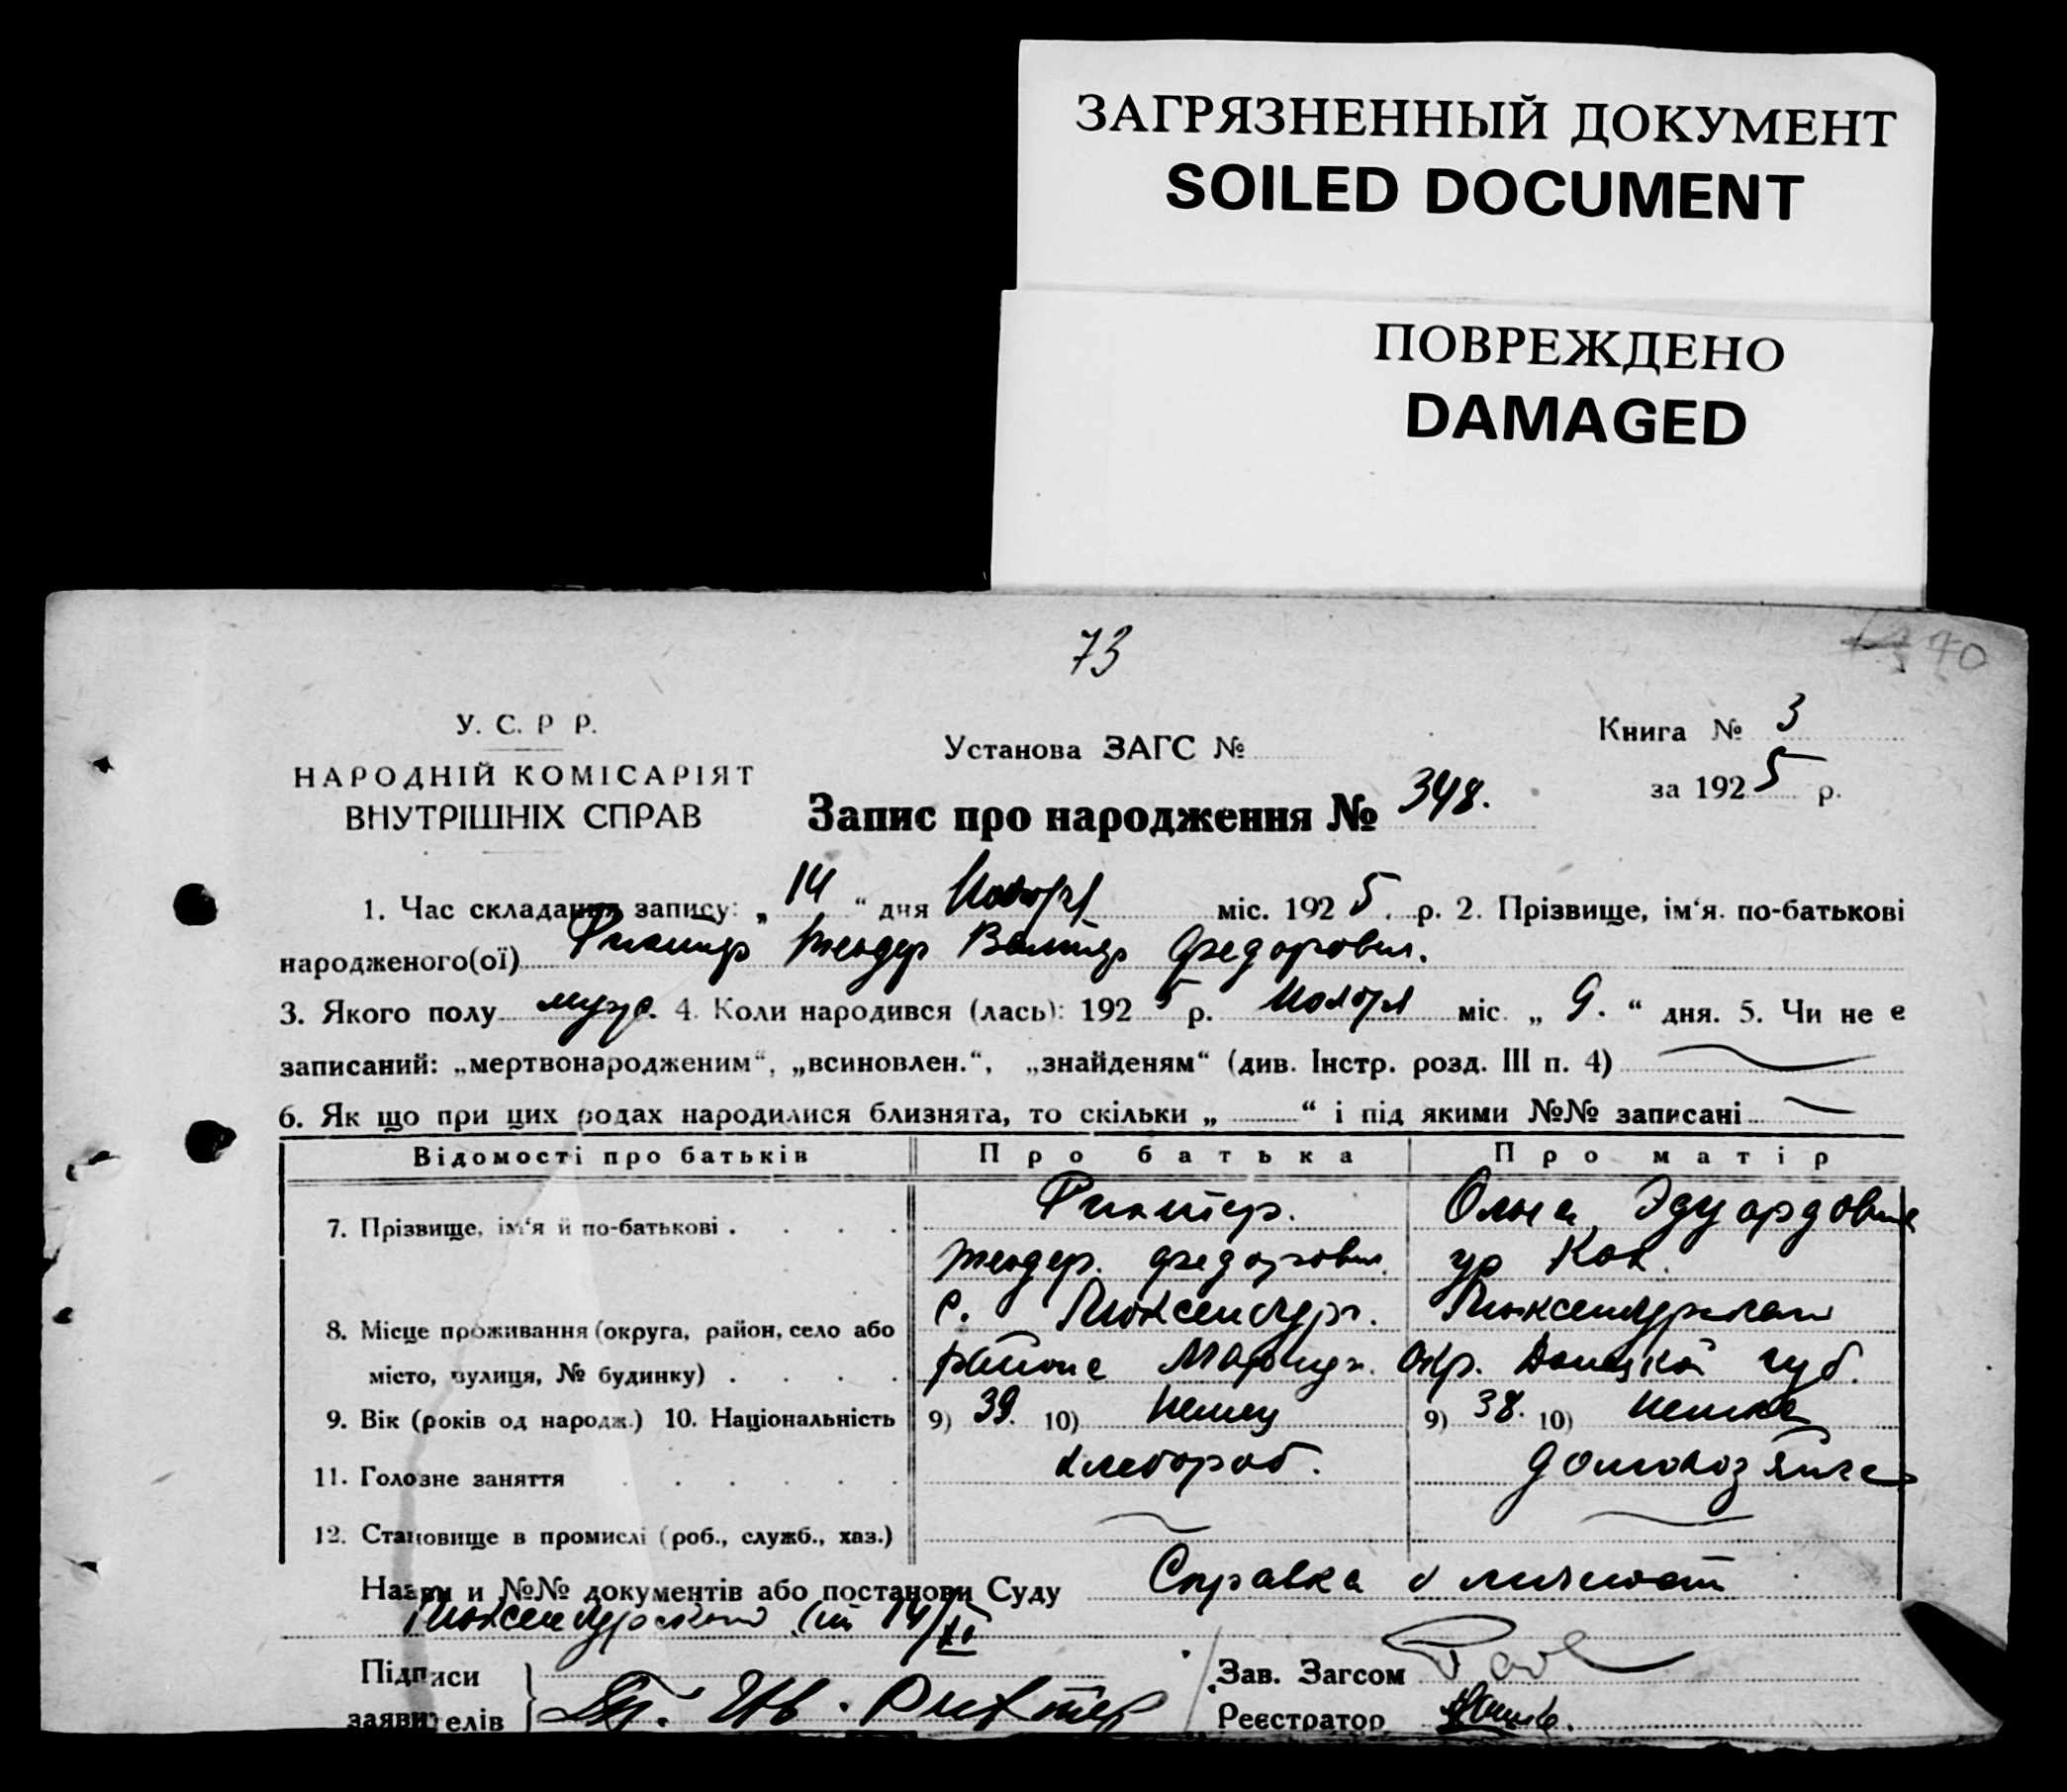 ЗАГРЯЗНЕННЫЙ ДОКУМЕНТ
SOILED DOCUMENT
ПОВРЕЖДЕНО
DAMAGED
73
70
У. С. Р Р.
НАРОДНІЙ КОМІСАРІЯТ
ВНУТРІШНІХ СПРАВ
Установа ЗАГС №
Книга № 3
за 1925 р.
Запис про народження № 348.
1. Час складання запису: „14“ дня Ноября міс. 1925. р. 2. Прізвище, ім‘я. по-батькові
народженого(ої) Рихтер Теодер Вальтер Федорович.
3. Якого полу муж. 4. Коли народився (лась): 1925 р. Ноября міс. „9.“ дня. 5. Чи не є
записаний: „мертвонародженим“, „всиновлен.“, „знайденям“ (див. Інстр. розд. III п. 4)
6. Як що при цих родах народилися близнята, то скільки „ “ і під якими №№ записані
Відомості про батьків Про батька Про матір
7. Прізвище, ім‘я й по-батькові . . . . Рихтер. Ольга Эдуардовна
Теодер. Федорович. ур Кох.
8. Місце проживання (округа, район, село або с. Люксембург. Люксембургском
місто, вулиця, № будинку) . . . . районе Мариуп. Окр. Донецкой губ.
9. Вік (років од народж.) 10. Національність 9) 39. 10) Немец 9) 38. 10) Немка
11. Головне заняття . . . . . . хлебороб. домохозяйка
12. Становище в промислі (роб., служб., хаз.)
Назви и №№ документів або постанови Суду Справка о личности
Люксембурском 14/XI
Підписи
заявителів Рихтер
Зав. Загсом
Реєстратор